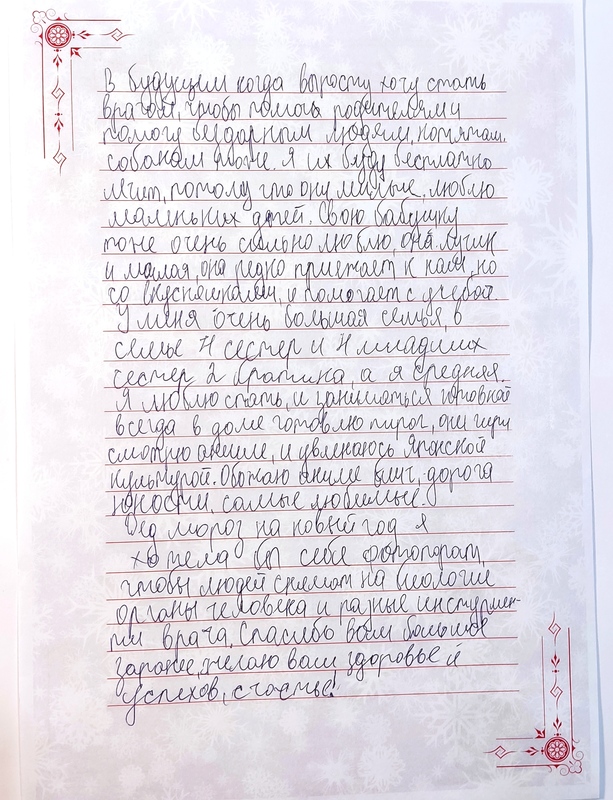 В будущем когда вырасту хочу стать
врачом, чтобы помочь родителям и
помогу бездомным людям, котятам,
собакам тоже. Я их буду бесплатно
лечит, потому что они милые, люблю
маленьких детей. Свою бабушку
тоже очень сильно люблю, она
и милая, она редко приезжает к нам, но
со вкусняшками, и помогает с учебой.
У меня очень большая семья, в
семье 4 сестер и 4 младших
сестер 2 братика, а я средняя.
Я люблю спать, и заниматься готовкой
всегда в доме готовлю пирог, они
смотрю аниме, и увлекаюсь Японской
культурой. Обожаю аниме блич, дорога
юности, самые любимые.
Дед мороз на новый год я
хотела бы себе фотопарат,
чтобы людей на биологие
органы человека и разные инструмен-
ты врача. Спасибо вам большое
заранее, желаю вам здоровье и
успехов, счастье!